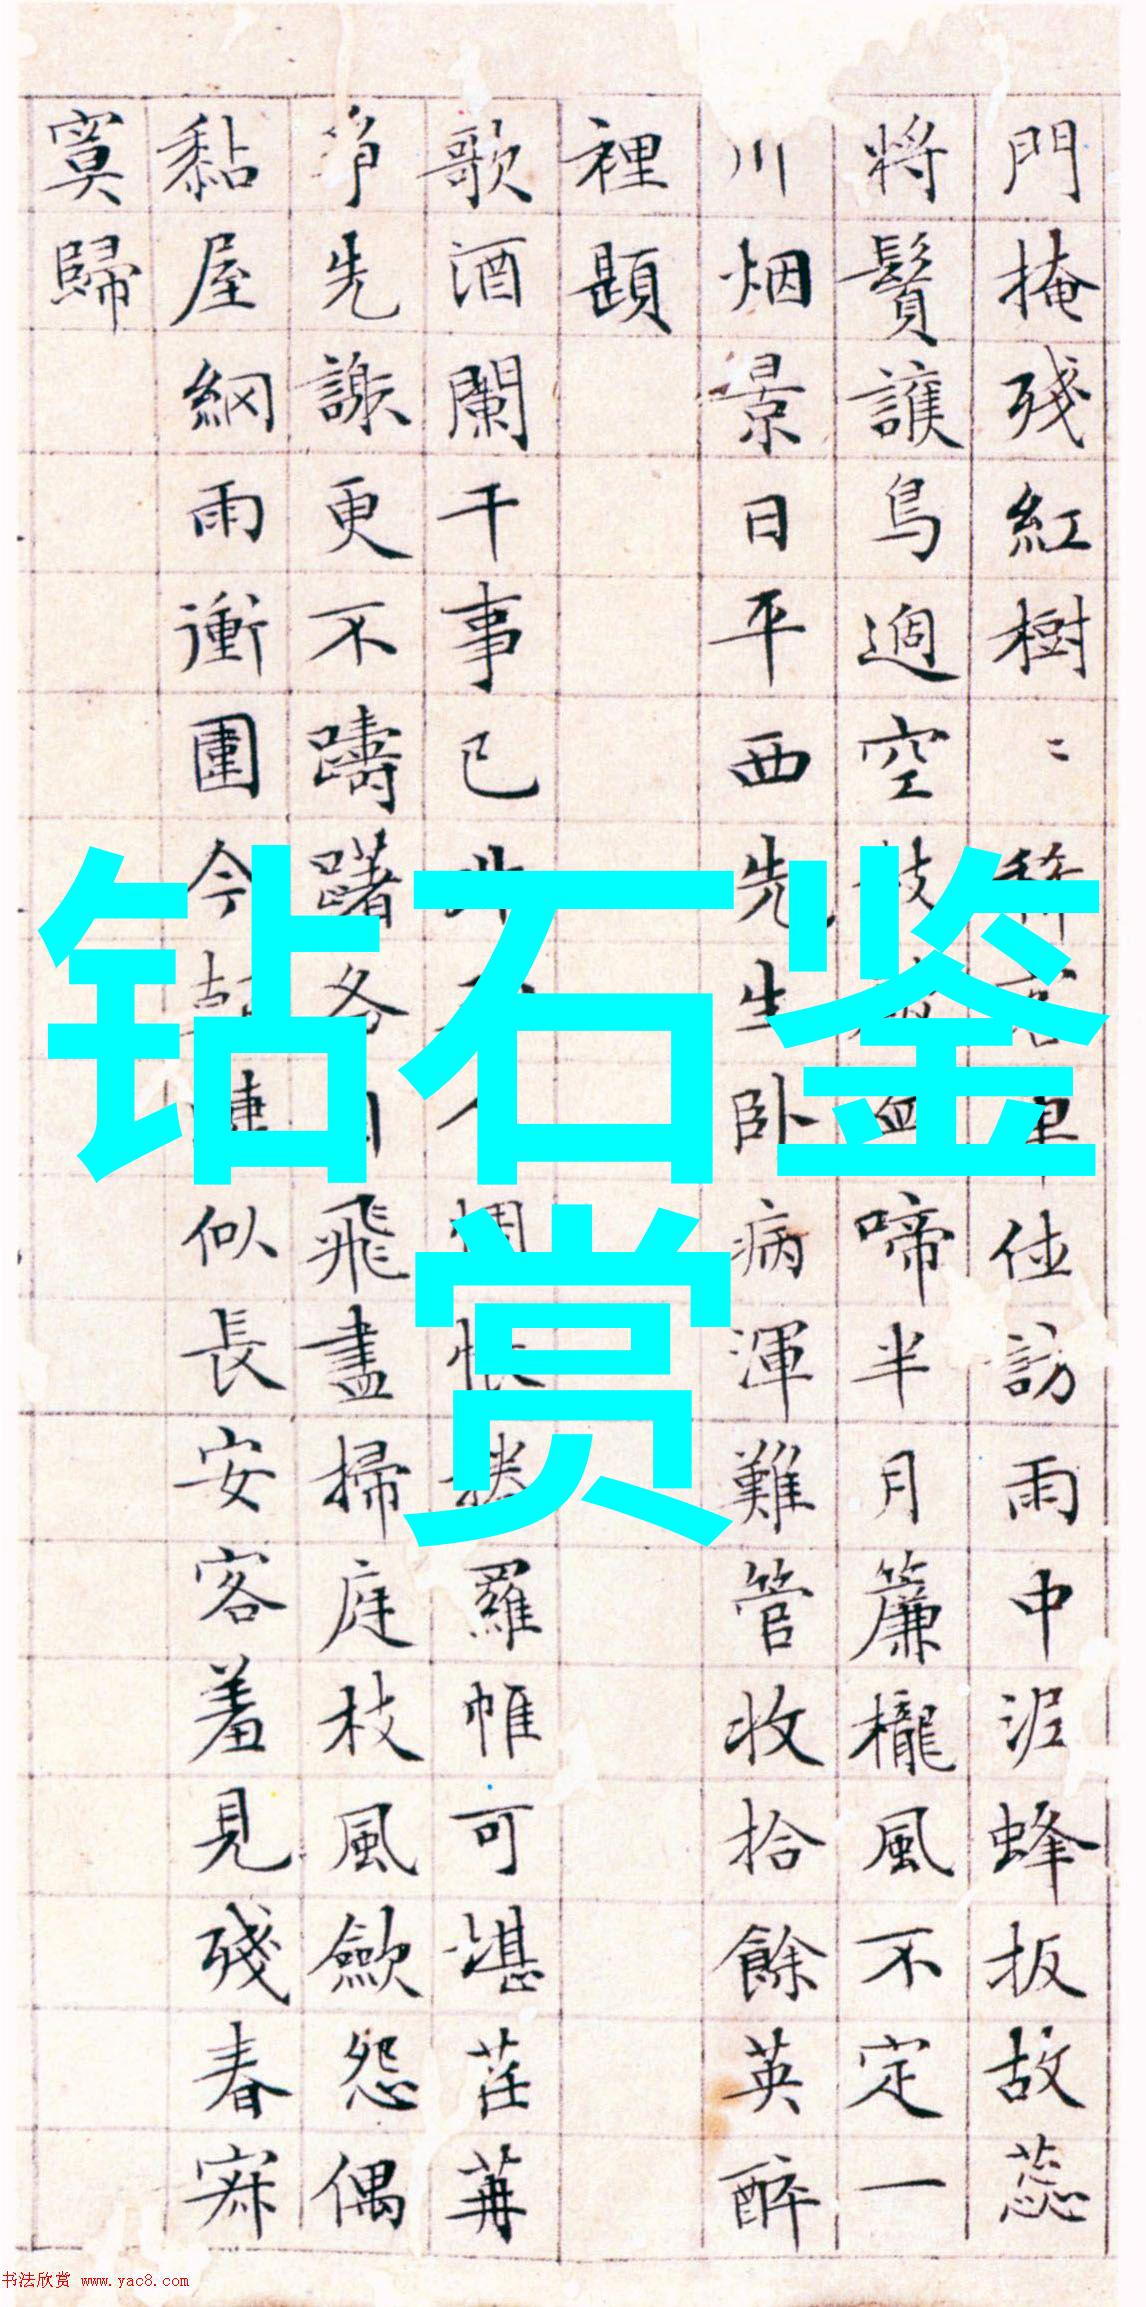 門掩殘紅樹〻稱 位訪雨中泥蜂扳故蕊
將鬢護鳥過空枝 血啼半月簾櫳風不定一
川烟景日平西先生卧病渾難管收拾餘英醉
裡題
歌酒闌干事已非 惆悵 羅帷可堪荏苒
爭先謝更不躊躇各自飛盡掃庭枝風歛怨偶
黏屋網雨衝圍今 似長安客羞見殘春寂
寞歸
钻石鉴
赏
书法欣赏 www.yac8.com